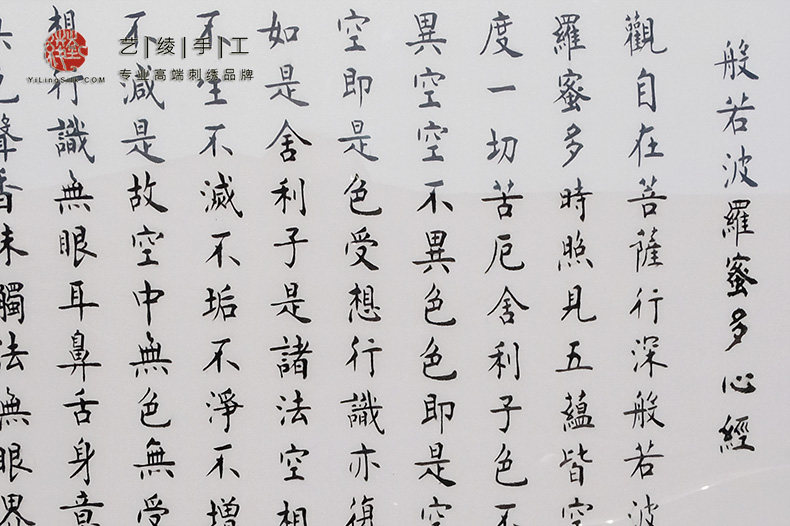 艺绫手工
专业高端刺绣品牌
YiLingSilk.COM
般若波羅蜜多心經
觀自在菩薩行深般若波
羅蜜多時照見五蘊皆空
度一切苦厄舍利子色不
異空空不異色色即是空
空即是色受想行識亦復
如是舍利子是諸法空相
不生不滅不垢不淨不增
不減是故空中無色無受
想行識無眼耳鼻舌身意
色聲香味觸法無眼界